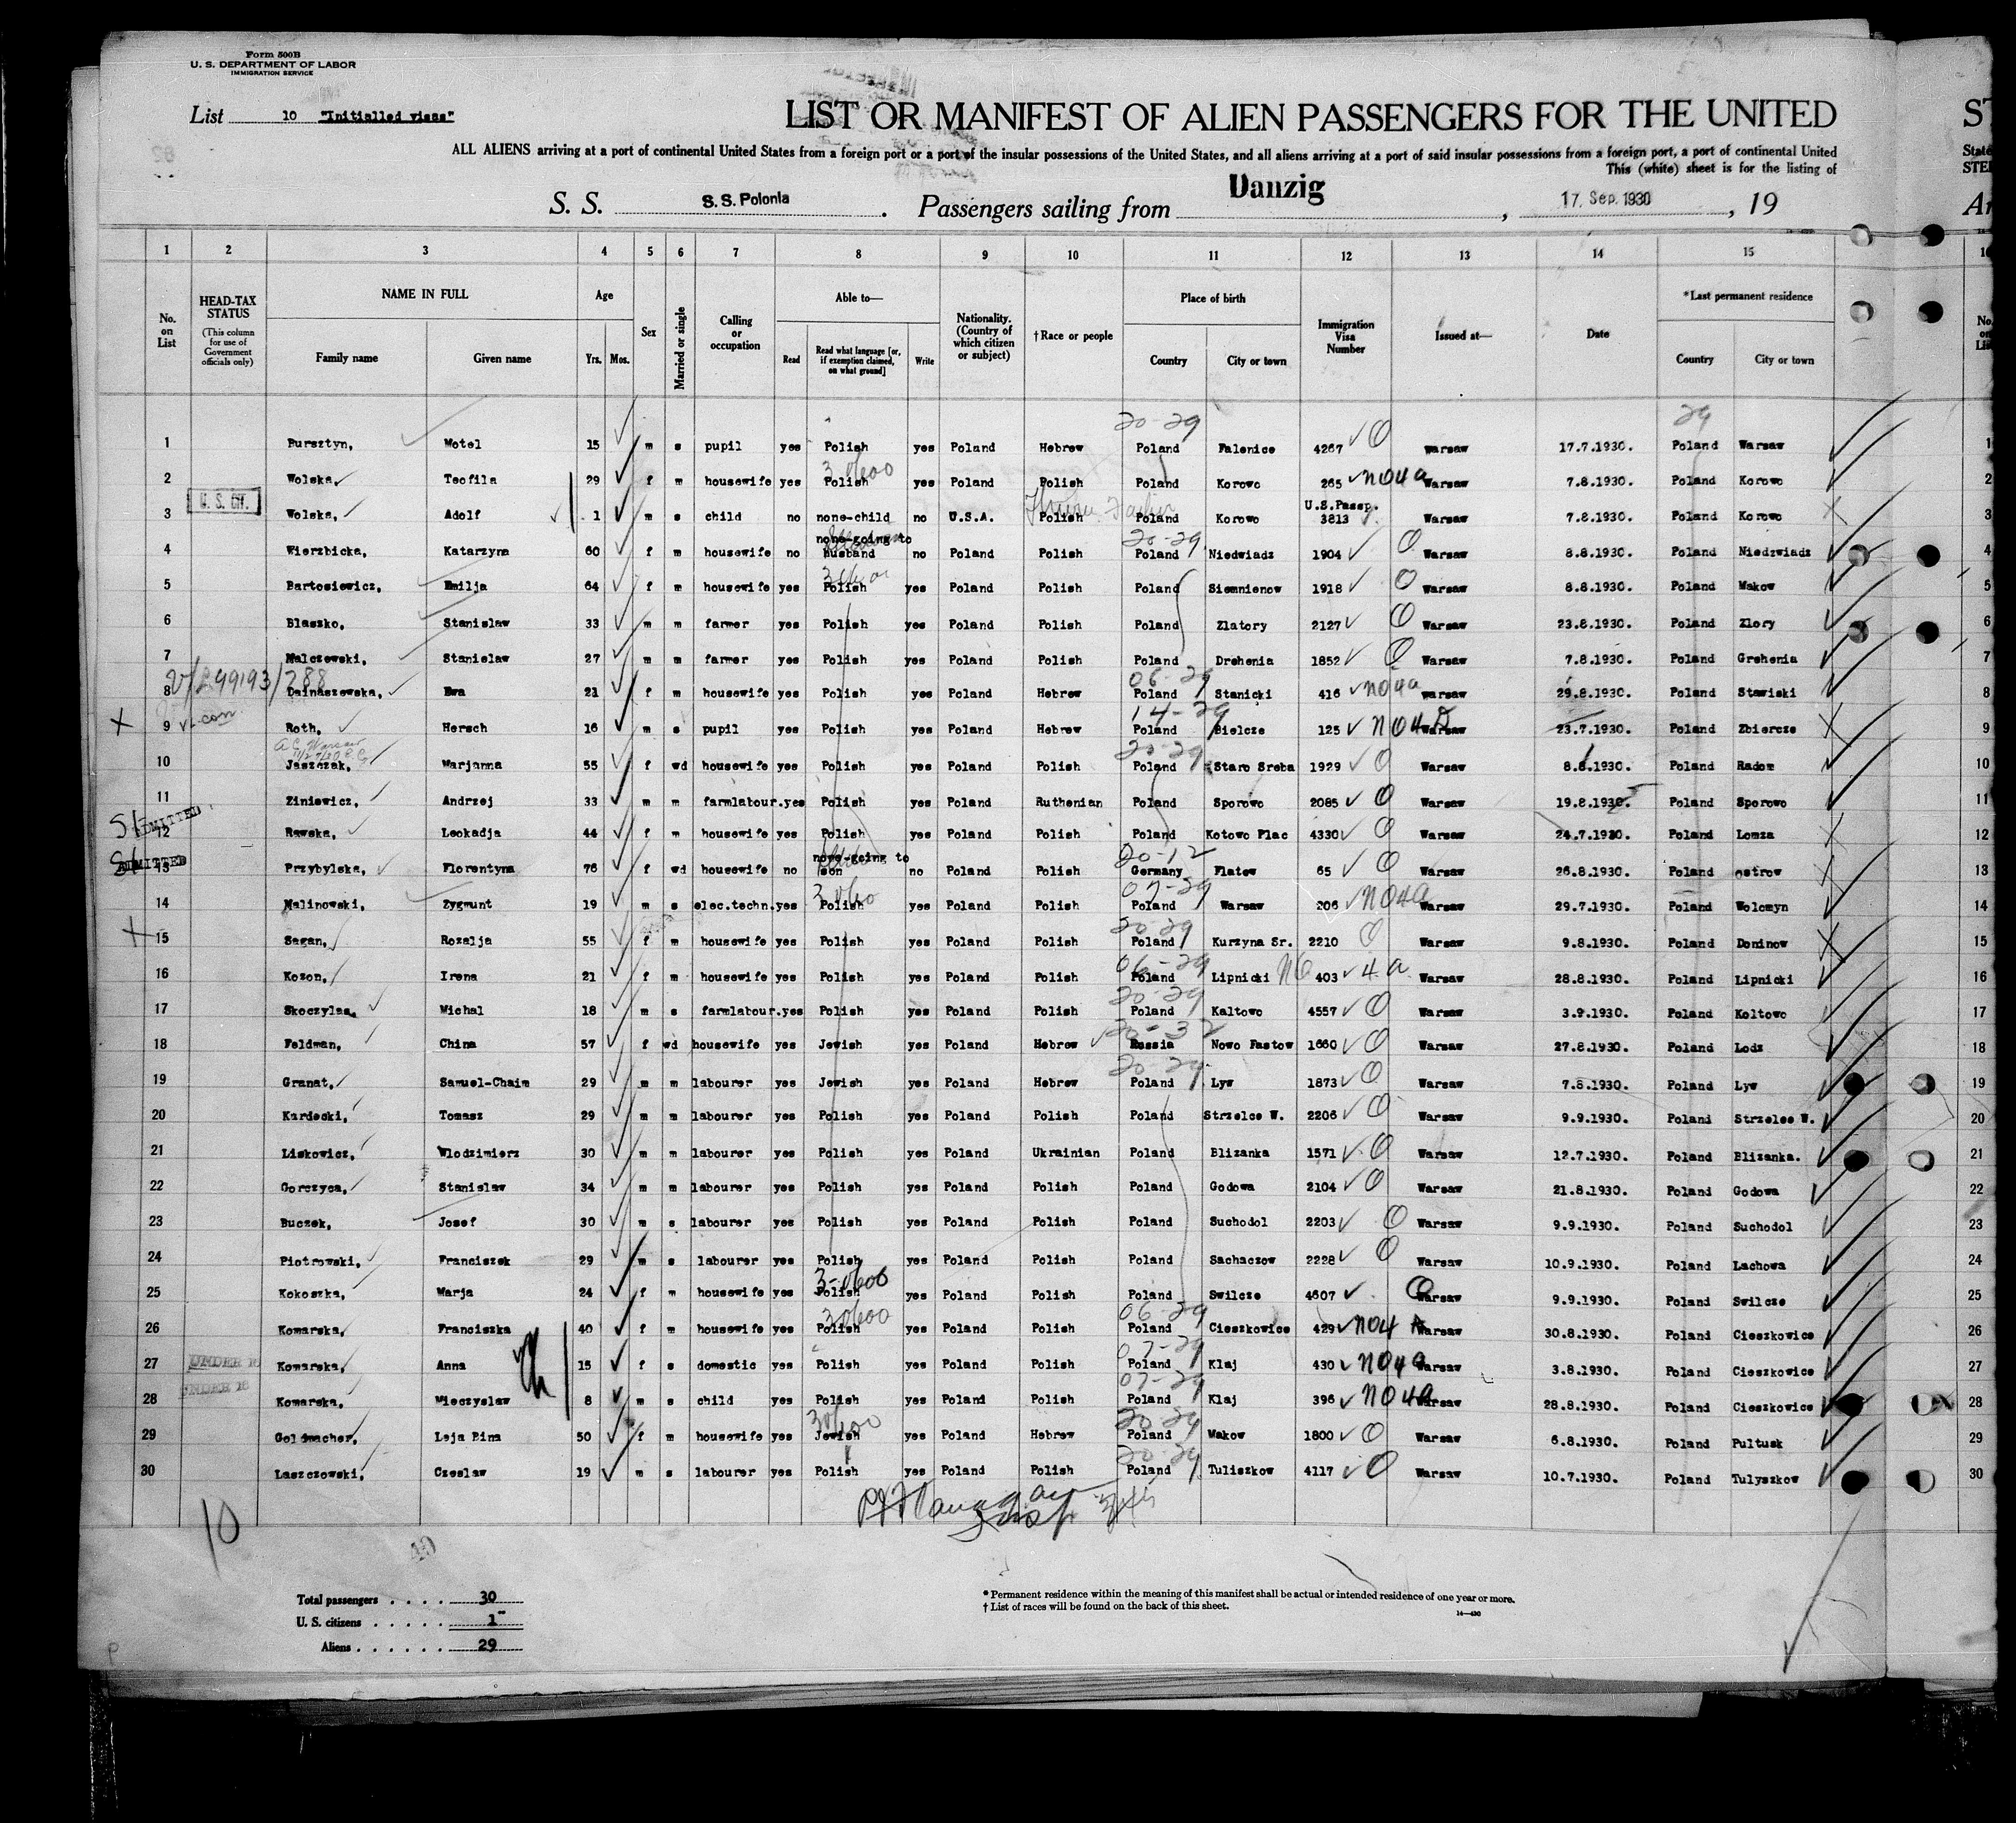 Form 500B
U. S. DEPARTMENT OF LABOR
IMMIGRATION SERVICE
List 10 "Initialled visas"
LIST OR MANIFEST OF ALIEN PASSENGERS FOR THE UNITED
ALL ALIENS arriving at a port of continental United States from a foreign port or a port of the insular possessions of the United States, and all aliens arriving at a port of said insular possessions from a foreign port, a port of continental United
This (white) sheet is for the listing of
S. S. S.S. Polonia. Passengers sailing from Danzig, 17. Sep. 1930, 19
1 2 3 4 5 6 7 8 9 10 11 12 13 14 15
No. on List
HEAD-TAX STATUS (This column for use of Government officials only)
NAME IN FULL Family name Given name
Age Yrs. Mos.
Sex
Married or single
Calling or occupation
Able to— Read Read what language [or, if exemption claimed, on what ground] Write
Nationality. (Country of which citizen or subject)
† Race or people
Place of birth Country City or town
Immigration Visa Number
Issued at—
Date
*Last permanent residence Country City or town
20-29 29
1 Bursztyn, Motel 15 m s pupil yes Polish yes Poland Hebrew Poland Falenice 4267 Warsaw 17.7.1930. Poland Warsaw 1
2 Wolska, Teofila 29 f m housewife yes Polish yes Poland Polish Poland Korowo 265 NO4a Warsaw 7.8.1930. Poland Korowo 2
U. S. Cit.
3 Wolska, Adolf 1 m s child no none-child no U.S.A. Polish Poland Korowo U.S.Passp. 3813 Warsaw 7.8.1930. Poland Korowo 3
20-29
4 Wierzbicka, Katarzyna 60 f m housewife no none-going to husband no Poland Polish Poland Niedwiadz 1904 Warsaw 8.8.1930. Poland Niedzwiadz 4
5 Bartosiewicz, Emilja 64 f m housewife yes Polish yes Poland Polish Poland Siemnienow 1918 Warsaw 8.8.1930. Poland Makow 5
6 Blaszko, Stanislaw 33 m m farmer yes Polish yes Poland Polish Poland Zlatory 2127 Warsaw 23.8.1930. Poland Zlory 6
7 Malczewski, Stanislaw 27 m m farmer yes Polish yes Poland Polish Poland Drehenia 1852 Warsaw 7.8.1930. Poland Grehenia 7
06-29
8 Dainaszewska, Ewa 21 f m housewife yes Polish yes Poland Hebrew Poland Stanicki 416 NO4a Warsaw 29.8.1930. Poland Stawiski 8
14-29
9 Roth, Hersch 16 m s pupil yes Polish yes Poland Hebrew Poland Bielcze 125 NO4a Warsaw 23.7.1930. Poland Zbiercze 9
20-29
10 Jaszczak, Marjanna 55 f wd housewife yes Polish yes Poland Polish Poland Staro Sreba 1929 Warsaw 8.8.1930. Poland Radom 10
11 Ziniewicz, Andrzej 33 m m farmlabour. yes Polish yes Poland Ruthenian Poland Sporowo 2085 Warsaw 19.8.1930. Poland Sporowo 11
ADMITTED
12 Rawska, Leokadja 44 f m housewife yes Polish yes Poland Polish Poland Kotowo Plac 4330 Warsaw 24.7.1930. Poland Lomza 12
ADMITTED 20-12
13 Przybylska, Florentyna 76 f wd housewife no none-going to son no Poland Polish Germany Flatow 65 Warsaw 26.8.1930. Poland Ostrow 13
07-29
14 Malinowski, Zygmunt 19 m s elec.techn. yes Polish yes Poland Polish Poland Warsaw 206 NO4a Warsaw 29.7.1930. Poland Wolomyn 14
20-29
15 Sagan, Rozalja 55 f m housewife yes Polish yes Poland Polish Poland Kurzyna Sr. 2210 Warsaw 9.8.1930. Poland Doninow 15
06-29
16 Kozon, Irena 21 f m housewife yes Polish yes Poland Polish Poland Lipnicki NO 403 4a Warsaw 28.8.1930. Poland Lipnicki 16
20-29
17 Skoczylas, Michal 18 m s farmlabour. yes Polish yes Poland Polish Poland Kaltowo 4557 Warsaw 3.9.1930. Poland Koltowo 17
20-32
18 Feldman, China 57 f wd housewife yes Jewish yes Poland Hebrew Russia Nowo Pastow 1660 Warsaw 27.8.1930. Poland Lodz 18
20-29
19 Granat, Samuel-Chaim 29 m m labourer yes Jewish yes Poland Hebrew Poland Lyw 1873 Warsaw 7.8.1930. Poland Lyw 19
20 Kurdecki, Tomasz 29 m m labourer yes Polish yes Poland Polish Poland Strzelce W. 2206 Warsaw 9.9.1930. Poland Strzelce W. 20
21 Liskowicz, Wlodzimierz 30 m m labourer yes Polish yes Poland Ukrainian Poland Blizanka 1571 Warsaw 12.7.1930. Poland Blizanka. 21
22 Gorczyca, Stanislaw 34 m m labourer yes Polish yes Poland Polish Poland Godowa 2104 Warsaw 21.8.1930. Poland Godowa 22
23 Buczek, Josef 30 m s labourer yes Polish yes Poland Polish Poland Suchodol 2203 Warsaw 9.9.1930. Poland Suchodol 23
24 Piotrowski, Franciszek 29 m s labourer yes Polish yes Poland Polish Poland Sachaczow 2228 Warsaw 10.9.1930. Poland Lachowa 24
25 Kokoszka, Marja 24 f m housewife yes Polish yes Poland Polish Poland Swilcze 4607 Warsaw 9.9.1930. Poland Swilcze 25
06-29
26 Komarska, Franciszka 40 f m housewife yes Polish yes Poland Polish Poland Cieszkowice 429 NO4A Warsaw 30.8.1930. Poland Cieszkowice 26
07-29
27 UNDER 16 Komarska, Anna 15 f s domestic yes Polish yes Poland Polish Poland Klaj 430 NO4a Warsaw 3.8.1930. Poland Cieszkowice 27
07-29
28 UNDER 16 Komarska, Mieczyslaw 8 m s child yes Polish yes Poland Polish Poland Klaj 396 NO4a Warsaw 28.8.1930. Poland Cieszkowice 28
20-29
29 Goldmacher, Leja Bina 50 f m housewife yes Jewish yes Poland Hebrew Poland Makow 1800 Warsaw 6.8.1930. Poland Pultusk 29
20-29
30 Laszczowski, Czeslaw 19 m s labourer yes Polish yes Poland Polish Poland Tuliszkow 4117 Warsaw 10.7.1930. Poland Tulyszkow 30
10
Total passengers . . . . 30
U. S. citizens . . . . . 1
Aliens . . . . . . 29
* Permanent residence within the meaning of this manifest shall be actual or intended residence of one year or more.
† List of races will be found on the back of this sheet.
14—430